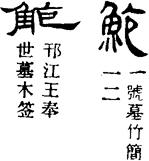 鮑
一號墓竹簡
一二
鮑
邗江王奉
世墓木签